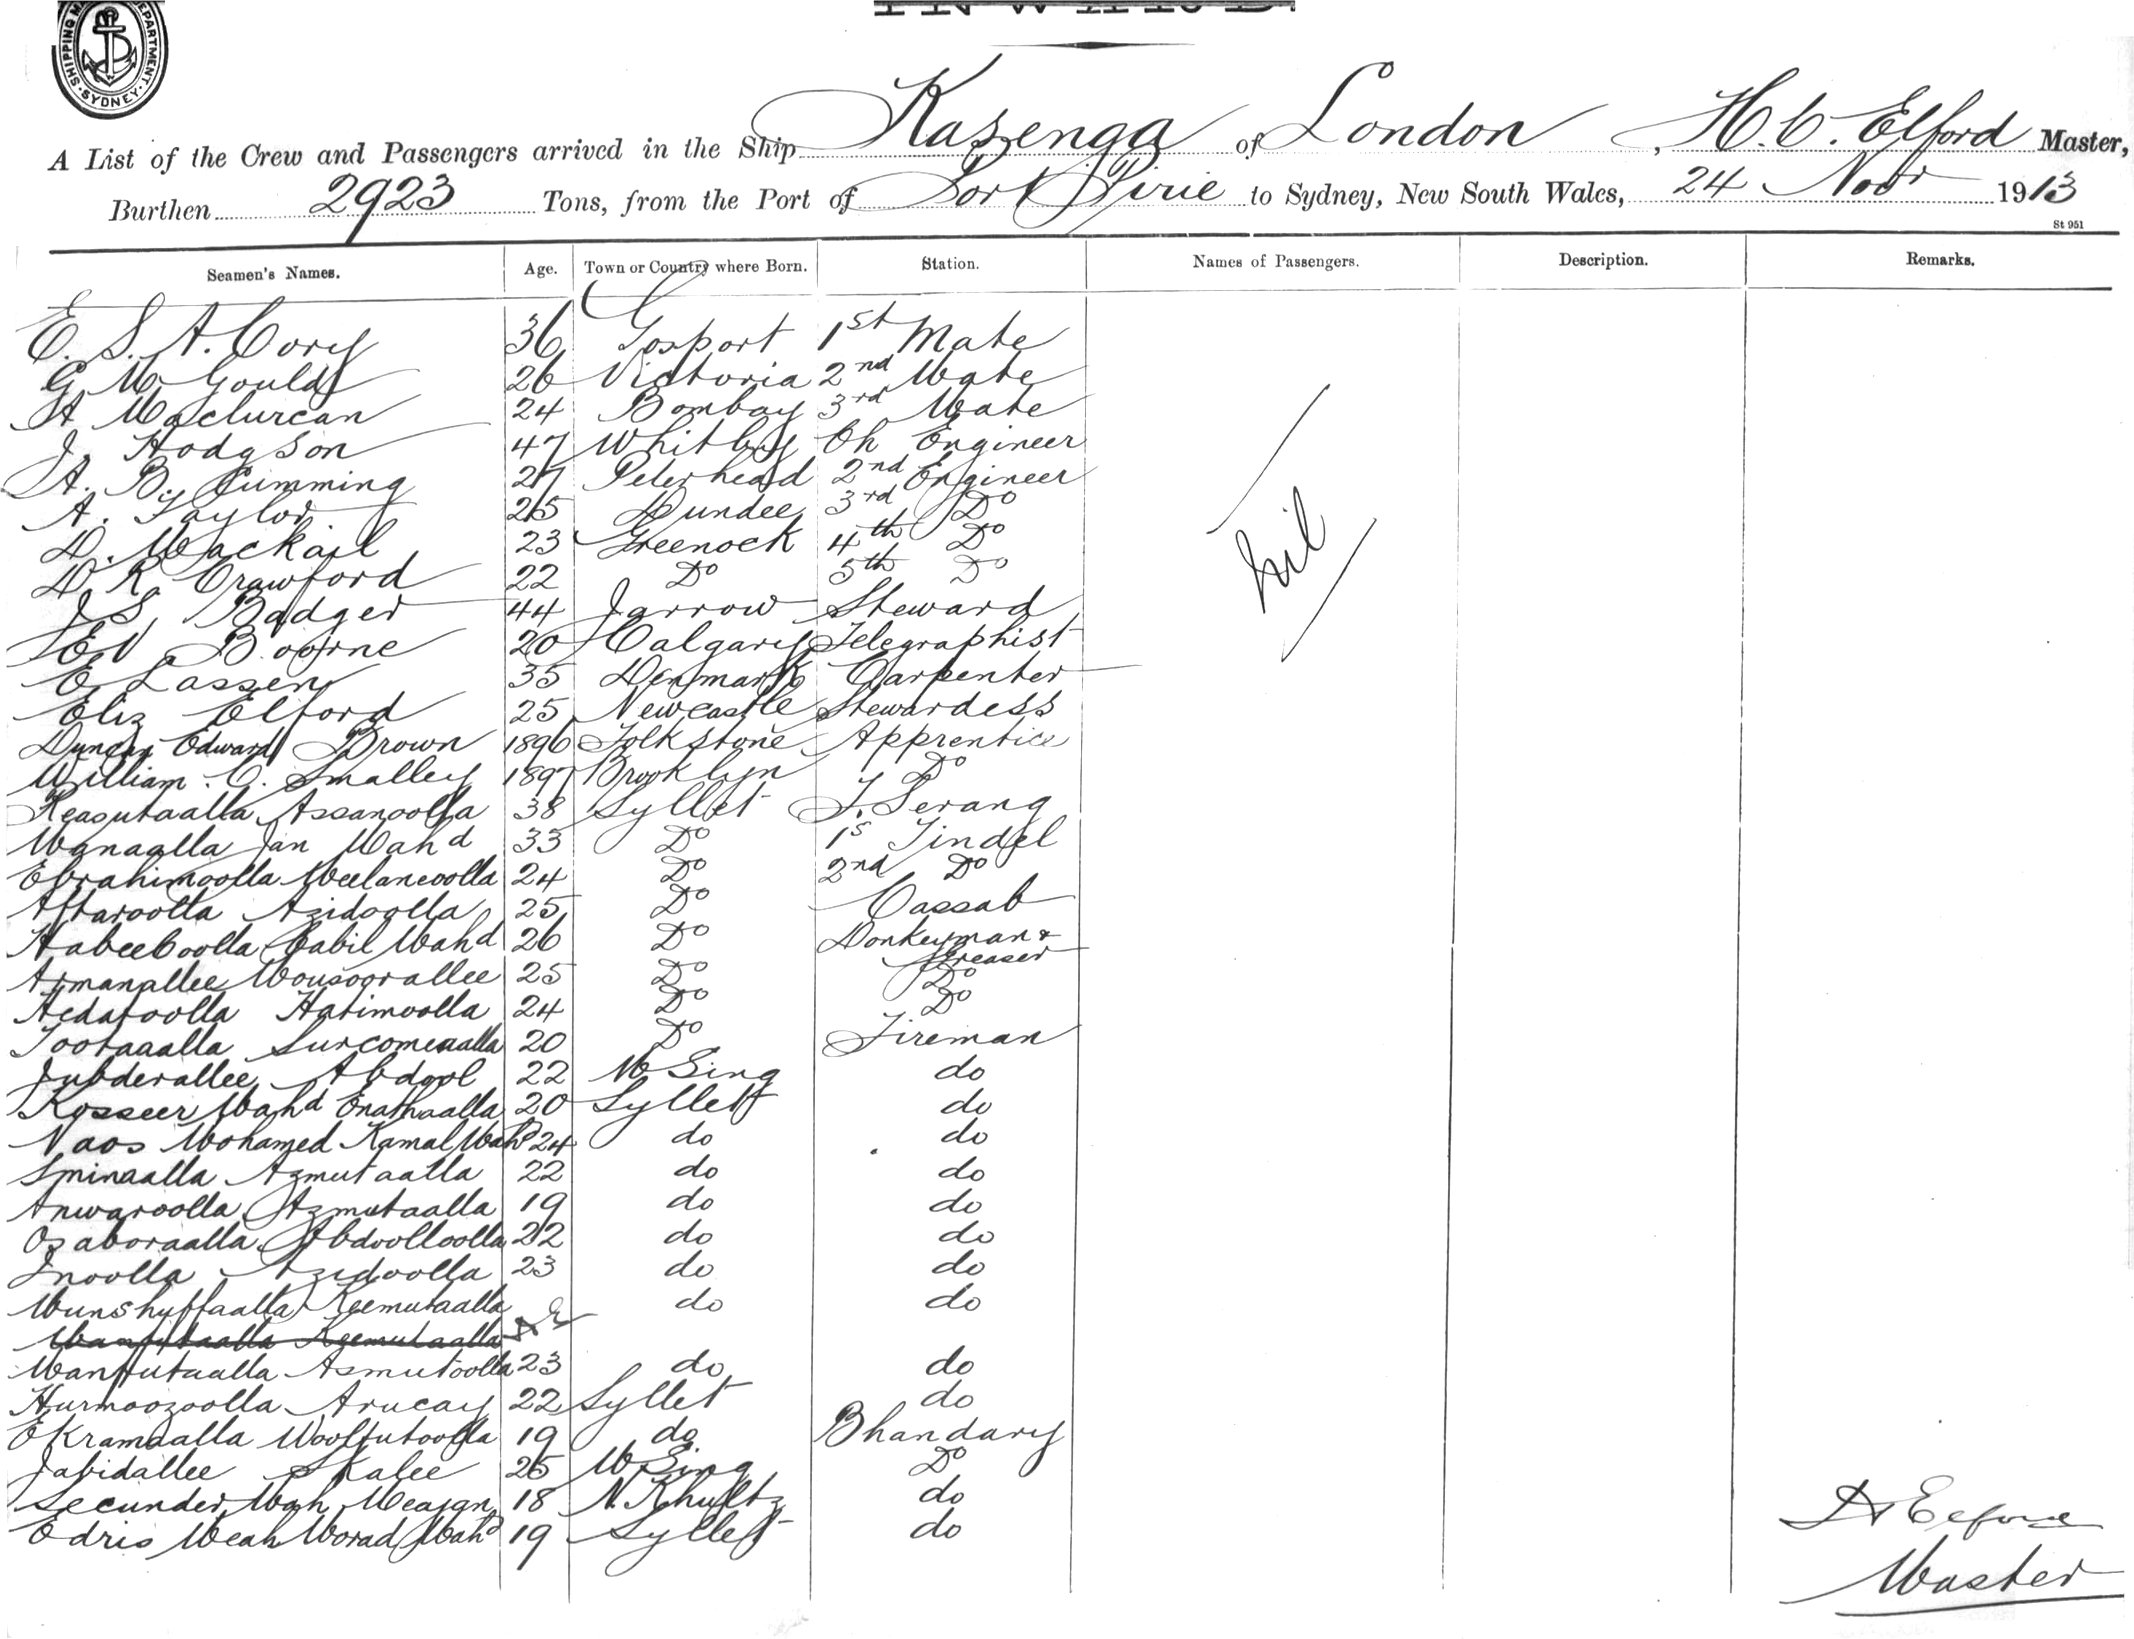 INWARD.
SHIPPING MASTER'S DEPARTMENT. SYDNEY.
A List of the Crew and Passengers arrived in the Ship Kasenga of London, H. C. Elford Master,
Burthen 2923 Tons, from the Port of Port Pirie to Sydney, New South Wales, 24 Novr 1913
St 951
Seamen's Names. Age. Town or Country where Born. Station. Names of Passengers. Description. Remarks.
E. S. A. Cory 36 Gosport 1st Mate
G. M. Gould 26 Victoria 2nd Mate
H Maclurcan 24 Bombay 3rd Mate
J. Hodgson 47 Whitby Ch Engineer
A. B. Cumming 27 Peterhead 2nd Engineer
A. Taylor 25 Dundee 3rd Do
D. Mackail 23 Greenock 4th Do
D. R. Crawford 22 Do 5th Do
nil
J S. Badger 44 Jarrow Steward
E V Boorne 20 Calgary Telegraphist
C. Lassen 35 Denmark Carpenter
Eliz Elford 25 Newcastle Stewardess
Duncan Edward Brown 1896 Folkstone Apprentice
William. C. Smalley 1897 Brooklyn Do
Keasutaalla Assanoolla 38 Syllet F. Serang
Manaalla Jan Mahd 33 Do 1s Tindel
Ebrahimoolla Meelaneoolla 24 Do 2nd Do
Aftaroolla Azidoolla 25 Do Cassab
Habeeboolla Cabil Mahd 26 Do Donkeyman & Greaser
Armanallee Mousoorallee 25 Do Do
Aedatoolla Hatimoolla 24 Do Do
Tootaaalla Surcomenaalla 20 Do Fireman
Jubderallee Abdool 22 M Sing do
Kosseer Mahd Enathaalla 20 Syllet do
Naos Mohamed Kamal Mahd 24 do do
Sminaalla Azmutaalla 22 do do
Anwaroolla Azmutaalla 19 do do
Osaboraalla Abdoolloolla 22 do do
Inoolla Azidoolla 23 do do
Munshuffaalla Keemutaalla do do
Manfutaalla Keemutaalla
Manfutaalla Asmutoolla 23 do do
Hurmoozoolla Arucay 22 Syllet do
Ekramaalla Woolfutoolla 19 do Bhandary
Jabidallee Skalee 25 M Sing Do
Secunder Mah Meajan 18 N. Khultz do
Edris Meah Morad Mahd 19 Syllet do
H Elford
Master